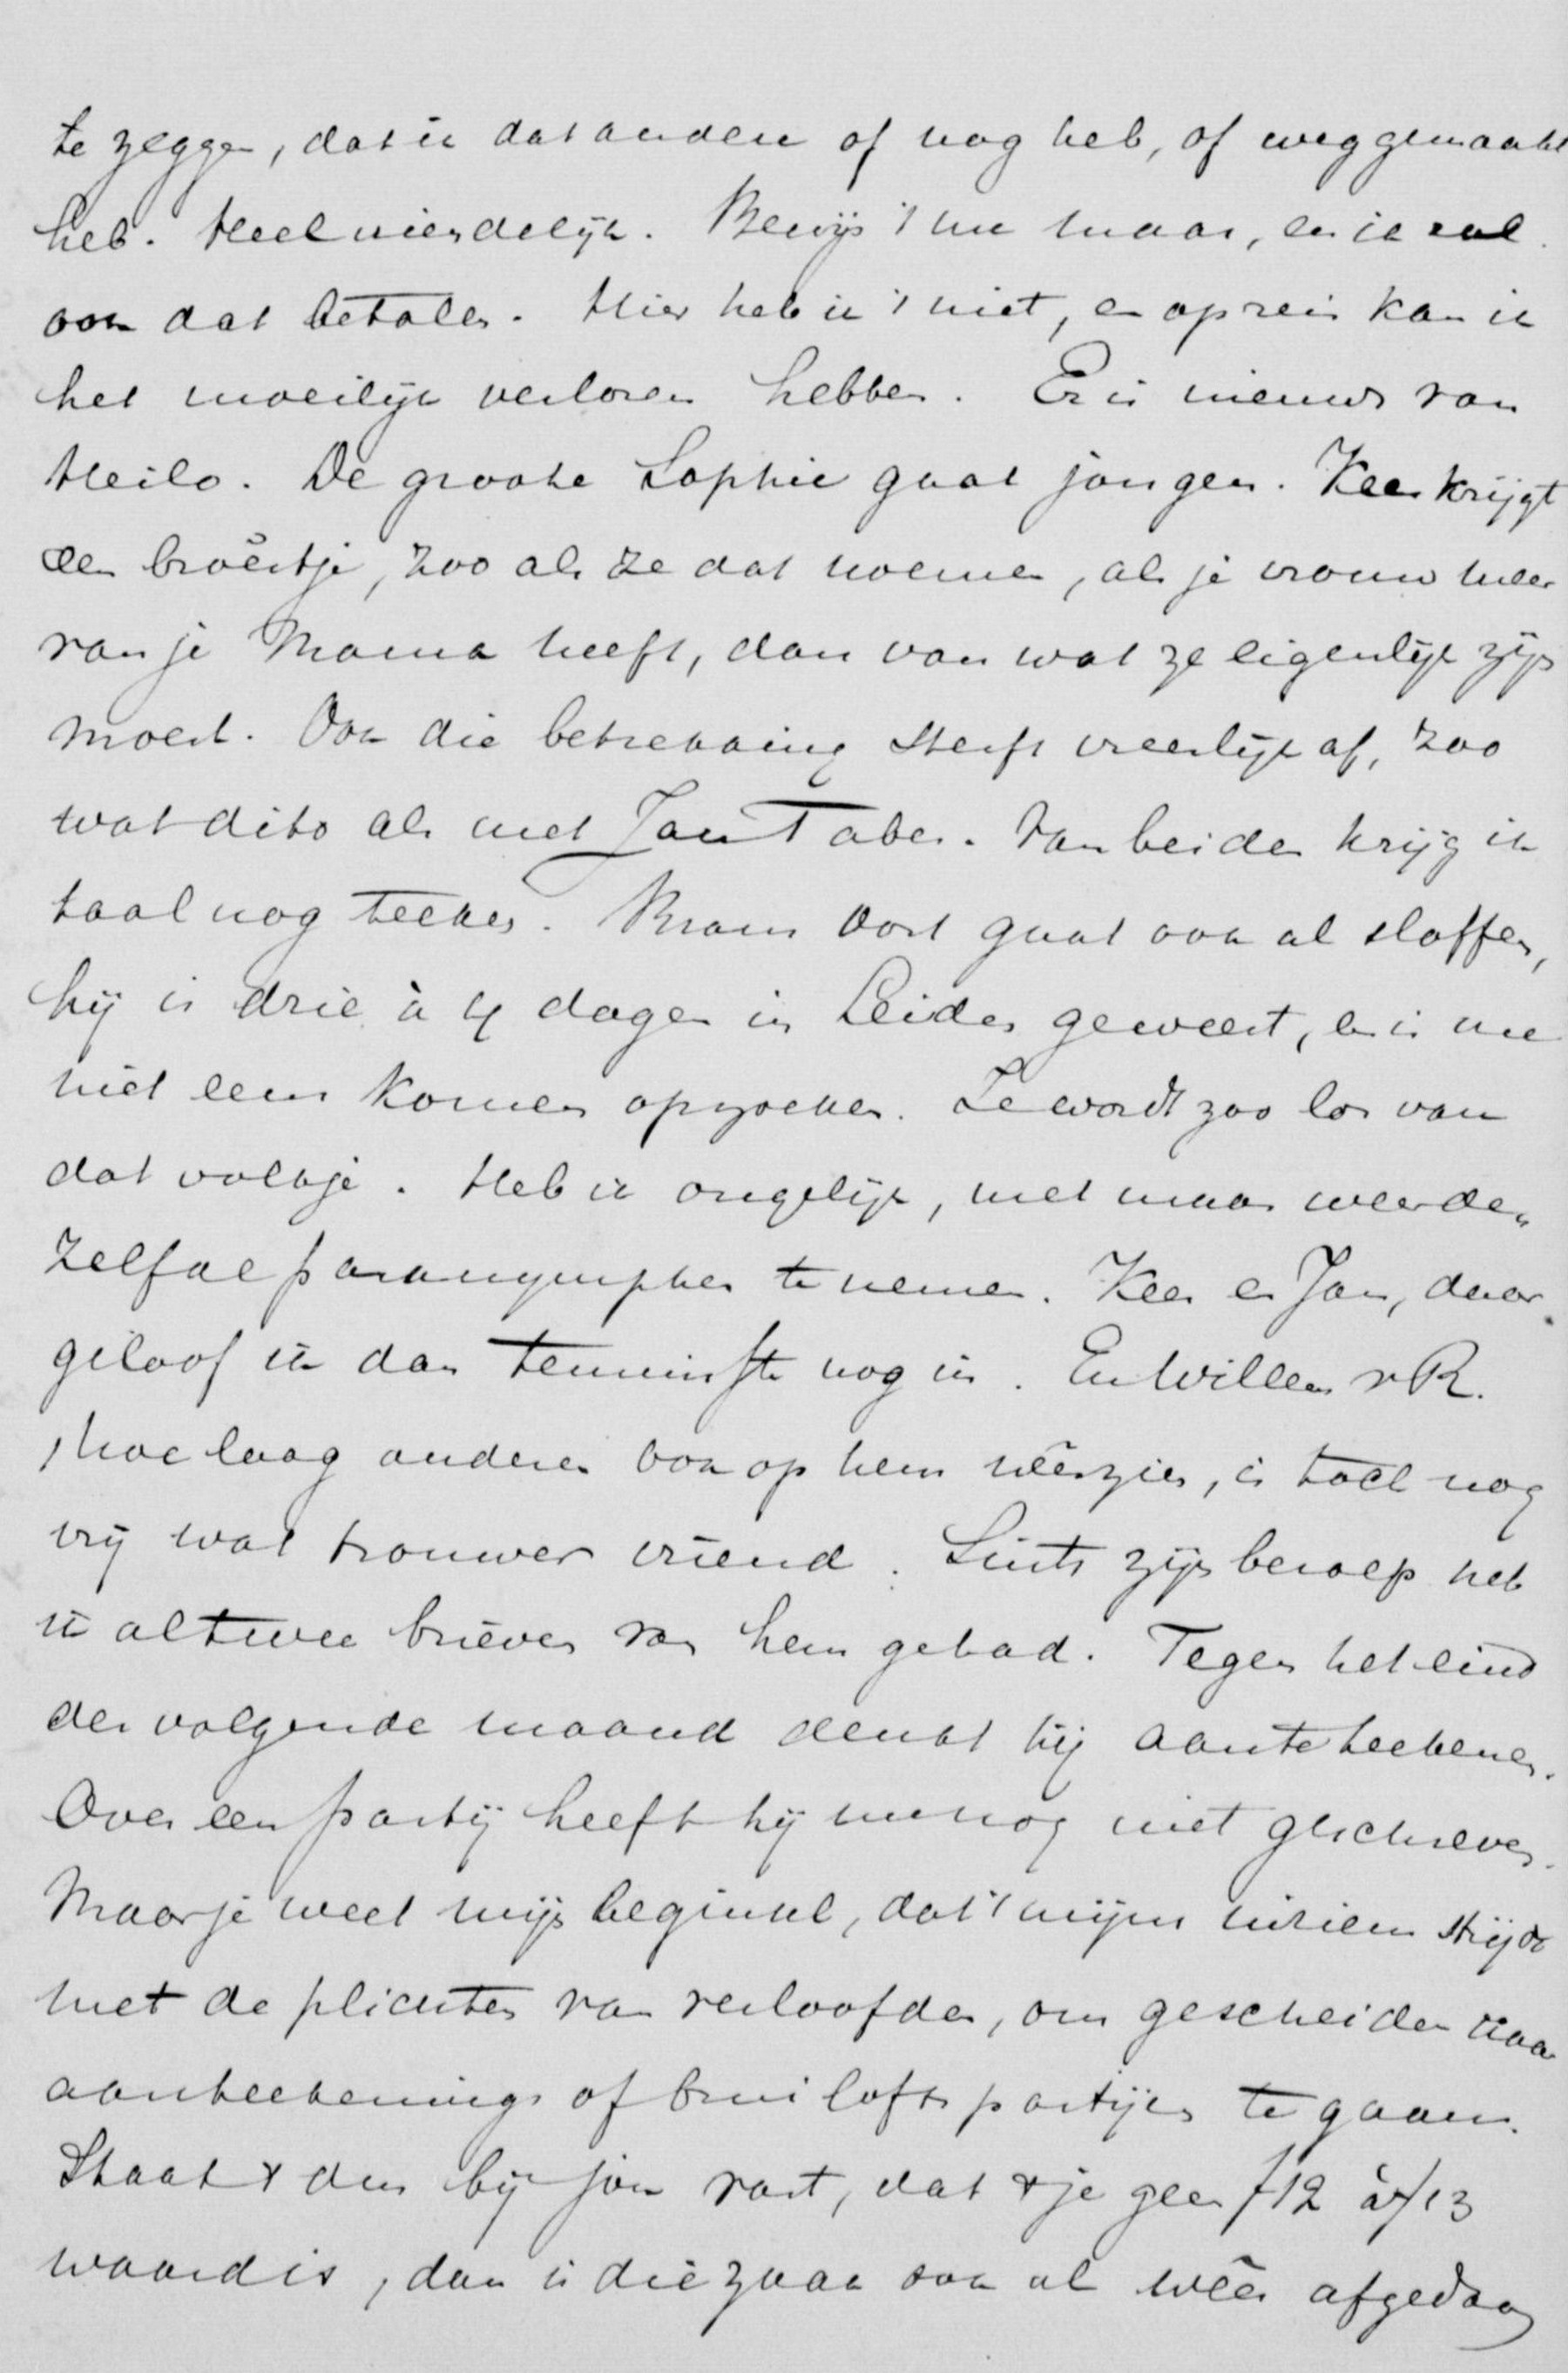 te zeggen, dat ik dat andere of nog heb, of weggemaakt
heb. Heel vriendelijk. Bewijs 't nu maar, en ik zal
ook dat betalen. Hier heb ik 't niet, en op reis kan ik
het moeilijk verloren hebben. Er is nieuws van
Heilo. De groote Sophie gaat jongen. Kees krijgt
een broêrtje, zoo als ze dat noemen, als je vrouw meer
van je Mama heeft, dan van wat ze eigenlijk zijn
moest. Ook die betrekking sterft vreeslijk af, zoo
wat dito als met Jan Taber. Van beiden krijg ik
taal nog teeken. Bram Oort gaat ook al sloffen,
hij is drie à 4 dagen in Leiden geweest, en is me
niet eens komen opzoeken. Ze wordt zoo los van
dat volkje. Heb ik ongelijk, met maar weer de,
zelfde paranymphen te nemen. Kees en Jan, daar
geloof ik dan tenminste nog in. En Willem v R.
, hoe laag anderen ook op hem neêrzien, is toch nog
vrij wat trouwer vriend. Sints zijn beroep heb
ik al twee brieven van hem gehad. Tegen het eind
der volgende maand denkt hij aan te teekenen.
Over een partij heeft hij me nog niet geschreven.
Maar je weet mijn beginsel, dat 't mijns inziens strijdt
met de plichten van verloofden, om gescheiden naar
aanteekenings of bruiloftspartijen te gaan.
Staat dus bij jou vast, dat je geen f 12 à f 13
waard is, dan is die zaak ook al weêr afgedaan